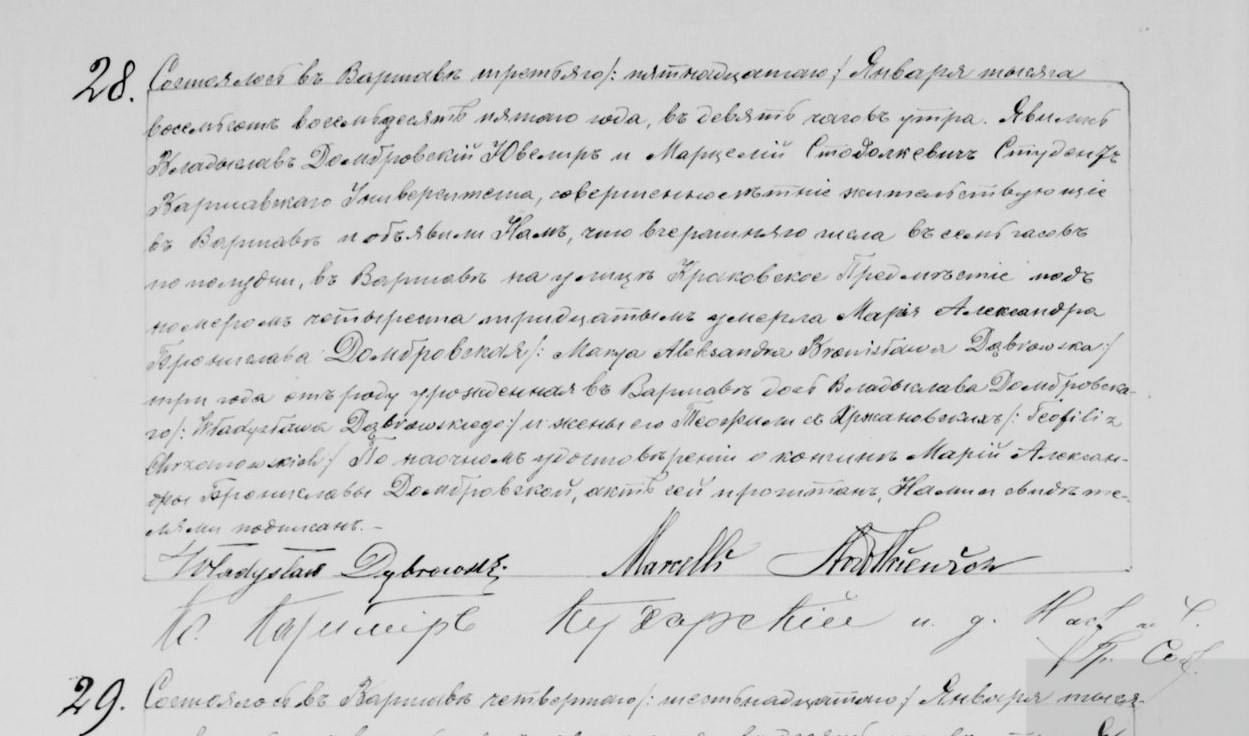 28. Состоялось въ Варшавѣ третьяго /: пятнадцатаго :/ Января тысяча
восемьсотъ восемьдесятъ пятаго года, въ девять часовъ утра. Явились
Владыславъ Домбровскій Ювелиръ и Марцелій Стодолкевичъ Студентъ
Варшавскаго Университета, совершеннолѣтніе жительствующіе
въ Варшавѣ и объявили Намъ, что вчерашняго числа въ семь часовъ
по полудни, въ Варшавѣ на улицѣ Краковское Предмѣстіе подъ
номеромъ четыреста тридцатымъ умерла Марія Александра
Бронислава Домбровская /: Marya Aleksandra Bronisława Dąbrowska :/
три года отъ роду урожденная въ Варшавѣ дочь Владыслава Домбровска-
го /: Władysława Dąbrowskiego :/ и жены его Теофили съ Хржановскихъ /: Teofili z
Chrzanowskich :/ По наочномъ удостовѣреніи о кончинѣ Маріи Алексан-
дры Брониславы Домбровской, актъ сей прочитанъ, Нами и свидѣте-
лями подписанъ. -
Władysław Dąbrowski Marcelli
К. Казиміръ Кухарскій и. д. Наст.
Гр. Сост.
29. Состоялось въ Варшавѣ четвертаго /: шестьнадцатаго :/ Января тыся-